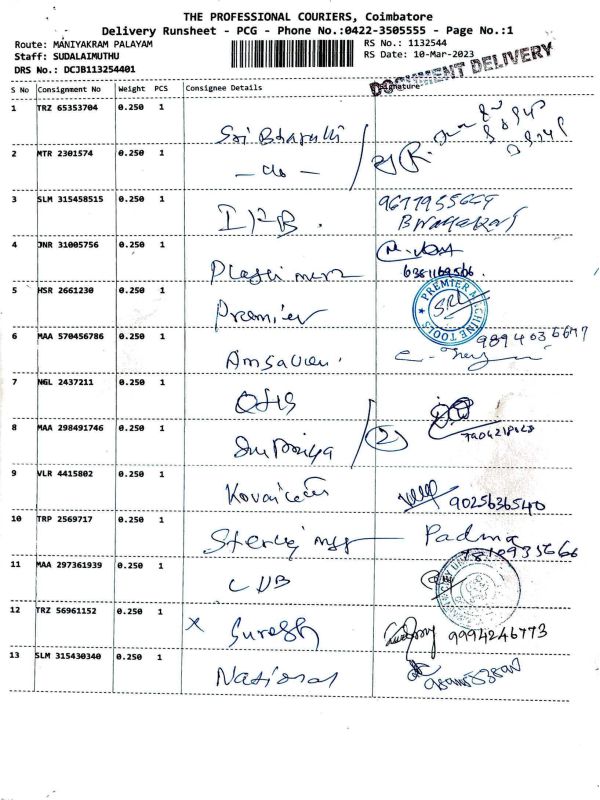 THE PROFESSIONAL COURIERS, Coimbatore
Delivery Runsheet - PCG - Phone No.:0422-3505555 - Page No.:1
Route: MANIYAKRAM PALAYAM
RS No.: 1132544
Staff: SUDALAIMUTHU
RS Date: 10-Mar-2023
DRS No.: DCJB113254401
DOCUMENT DELIVERY
S No Consignment No Weight PCS Consignee Details Signature
1 TRZ 65353704 0.250 1
Sri Bharathi
2 MTR 2301574 0.250 1
- do -
3 SLM 315458515 0.250 1
4 JNR 31005756 0.250 1
6381169506.
5 HSR 2661230 0.250 1
Premier
PREMIER MACHINE TOOLS
6 MAA 570456786 0.250 1
9894036647
7 NGL 2437211 0.250 1
8 MAA 298491746 0.250 1
Sri Priya
2
9 VLR 4415802 0.250 1
9025636540
10 TRP 2569717 0.250 1
Padma
11 MAA 297361939 0.250 1
CUB
12 TRZ 56961152 0.250 1
x Suresh 9994246773
13 SLM 315430340 0.250 1
National